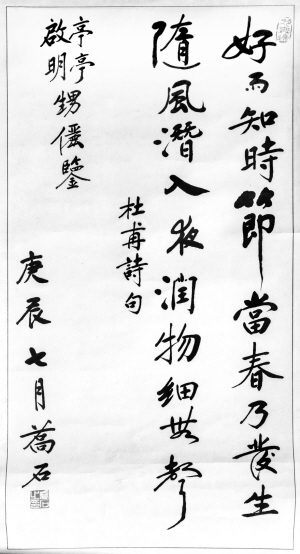 好雨知時節當春乃發生
隨風潛入夜潤物細無聲
杜甫詩句
亭亭
啟明甥儷鑒
庚辰七月石